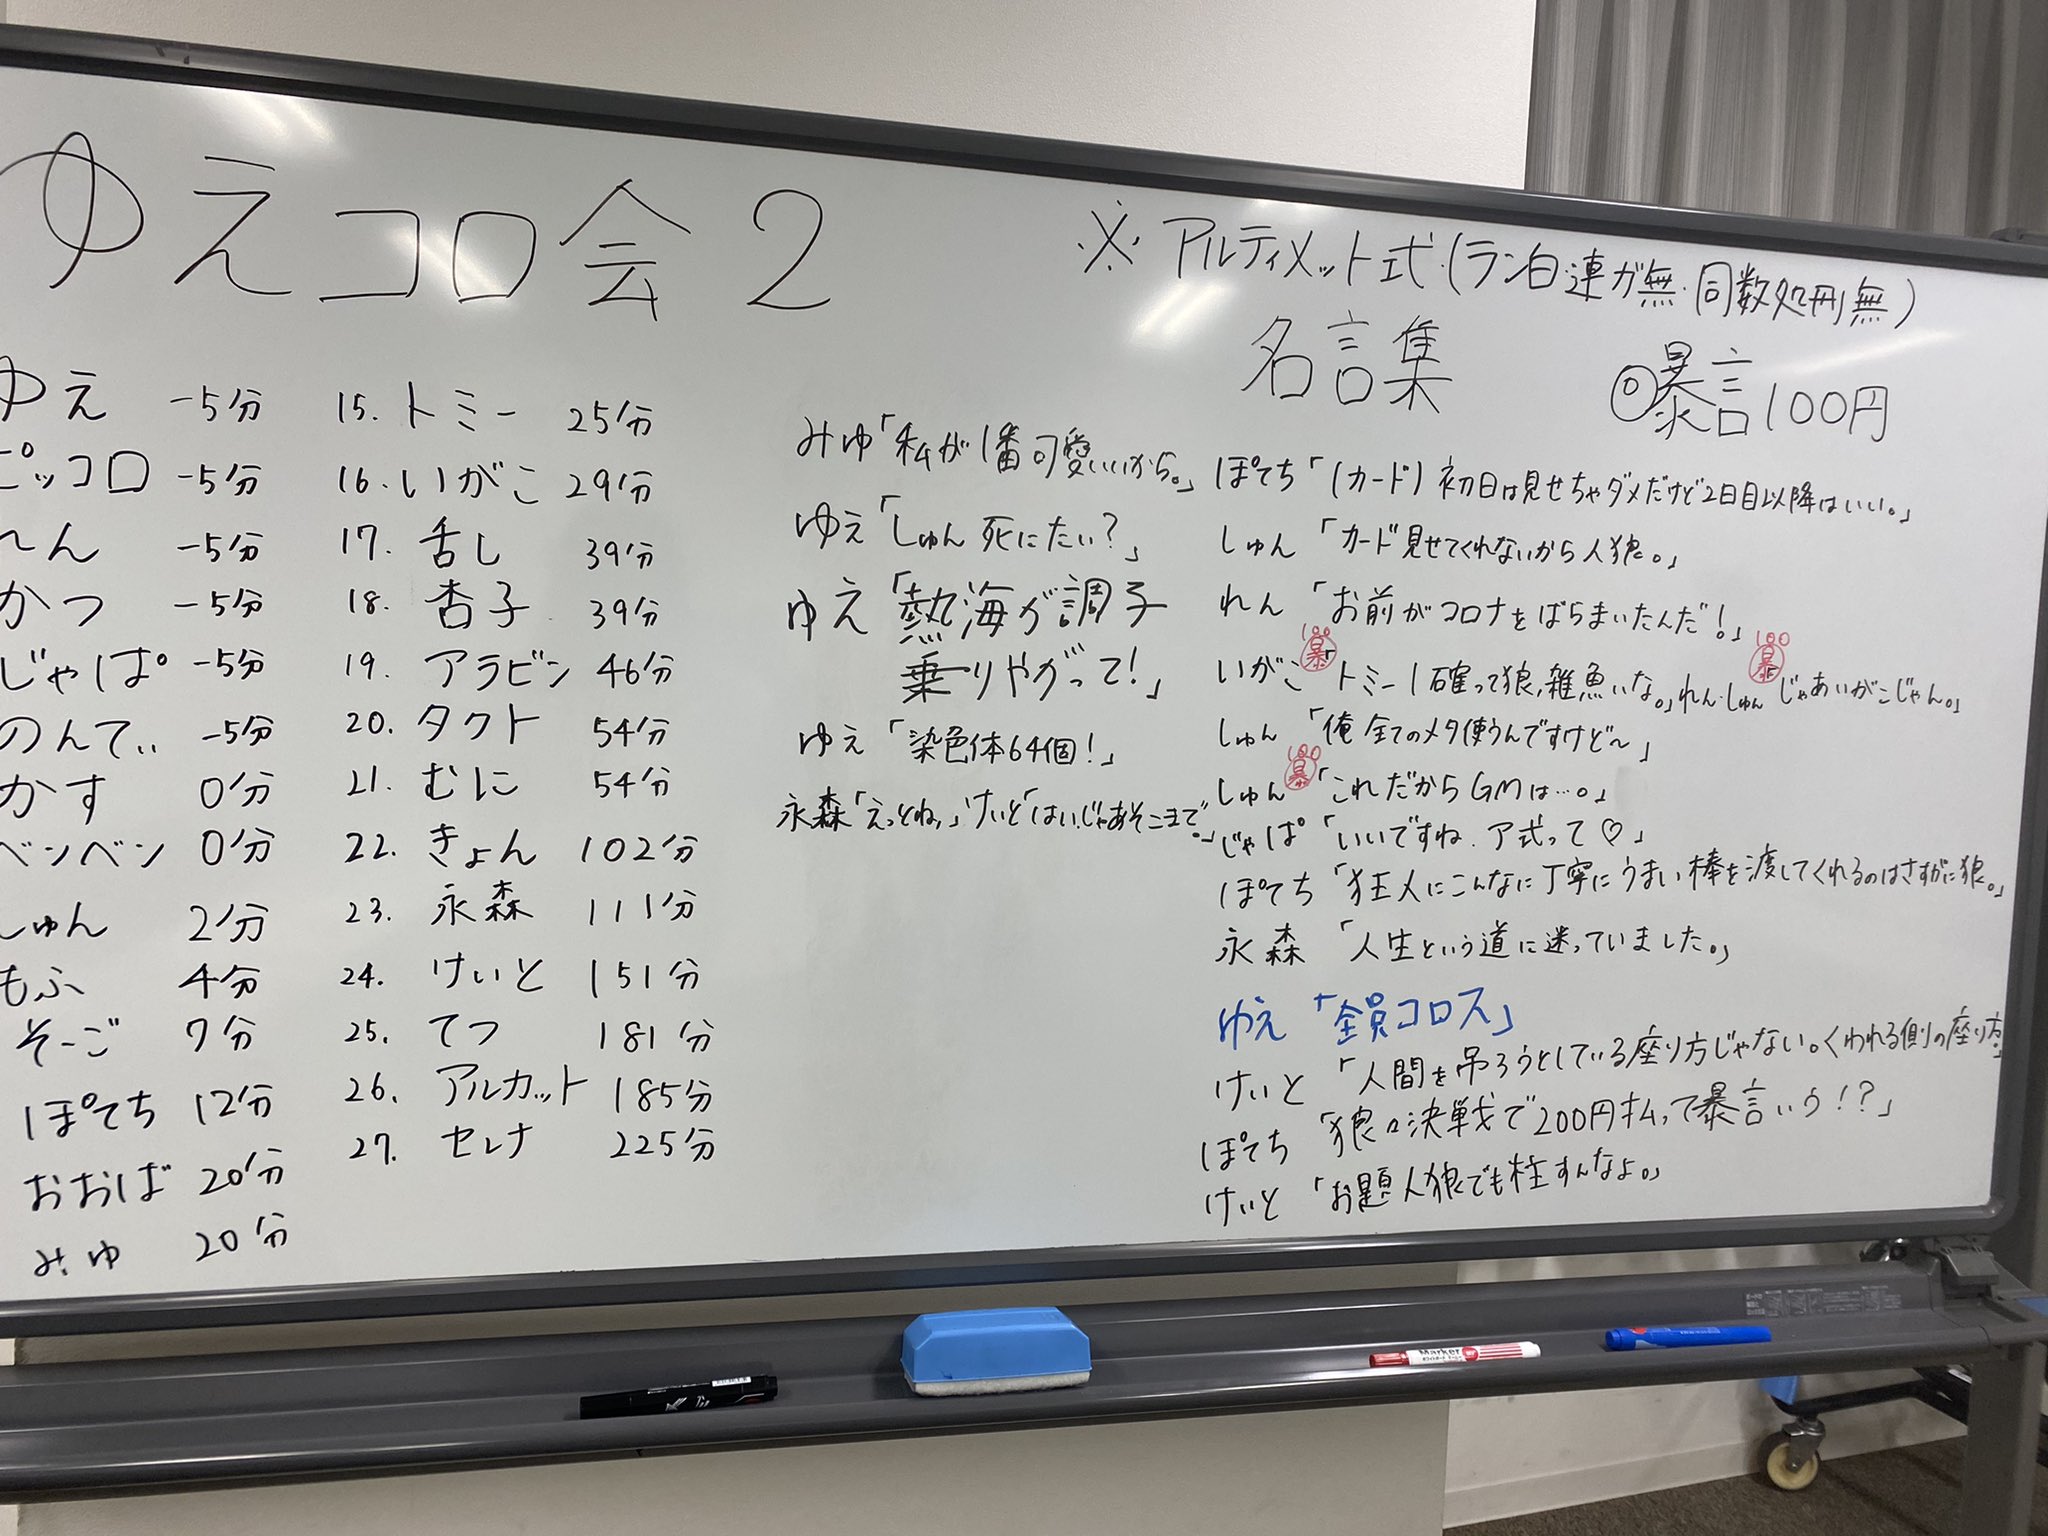 ゆえコロ会2
※アルティメット式(ラン白・連ガ無・同数処刑無)
ゆえ -5分
ピッコロ -5分
れん -5分
かつ -5分
じゃぱ -5分
のんてぃ -5分
かす 0分
ベンベン 0分
しゅん 2分
もふ 4分
そーご 7分
ぽてち 12分
おおば 20分
みゆ 20分
15. トミー 25分
16. いがこ 29分
17. 舌し 39分
18. 杏子 39分
19. アラビン 46分
20. タクト 54分
21. むに 54分
22. きょん 102分
23. 永森 111分
24. けいと 151分
25. てつ 181分
26. アルカット 185分
27. セレナ 225分
名言集
◎暴言100円
みゆ「私が1番可愛いいから。」
ゆえ「しゅん死にたい?」
ゆえ「熱海が調子
乗りやがって!」
ゆえ「染色体64個!」
永森「えっとねぇ」けいと「はい、じゃあそこまで。」
ぽてち「(カード)初日は見せちゃダメだけど2日目以降はいい。」
しゅん「カード見せてくれないから人狼。」
れん「お前がコロナをばらまいたんだ!」
100 暴 100 暴
いがこ「トミー1確って狼、雑魚いな。」れん・しゅん「じゃあいがこじゃん。」
しゅん「俺全てのメタ使うんですけど〜」
100 暴
しゅん「これだからGMは…。」
じゃぱ「いいですね、ア式って♡」
ぽてち「狂人にこんなに丁寧にうまい棒を渡してくれるのはさすがに狼。」
永森「人生という道に迷っていました。」
ゆえ「全員コロス」
けいと「人間を吊ろうとしている座り方じゃない。くわれる側の座り方。」
ぽてち「狼々決戦で200円払って暴言いう!?」
けいと「お題人狼でも柱すんなよ。」
Marker